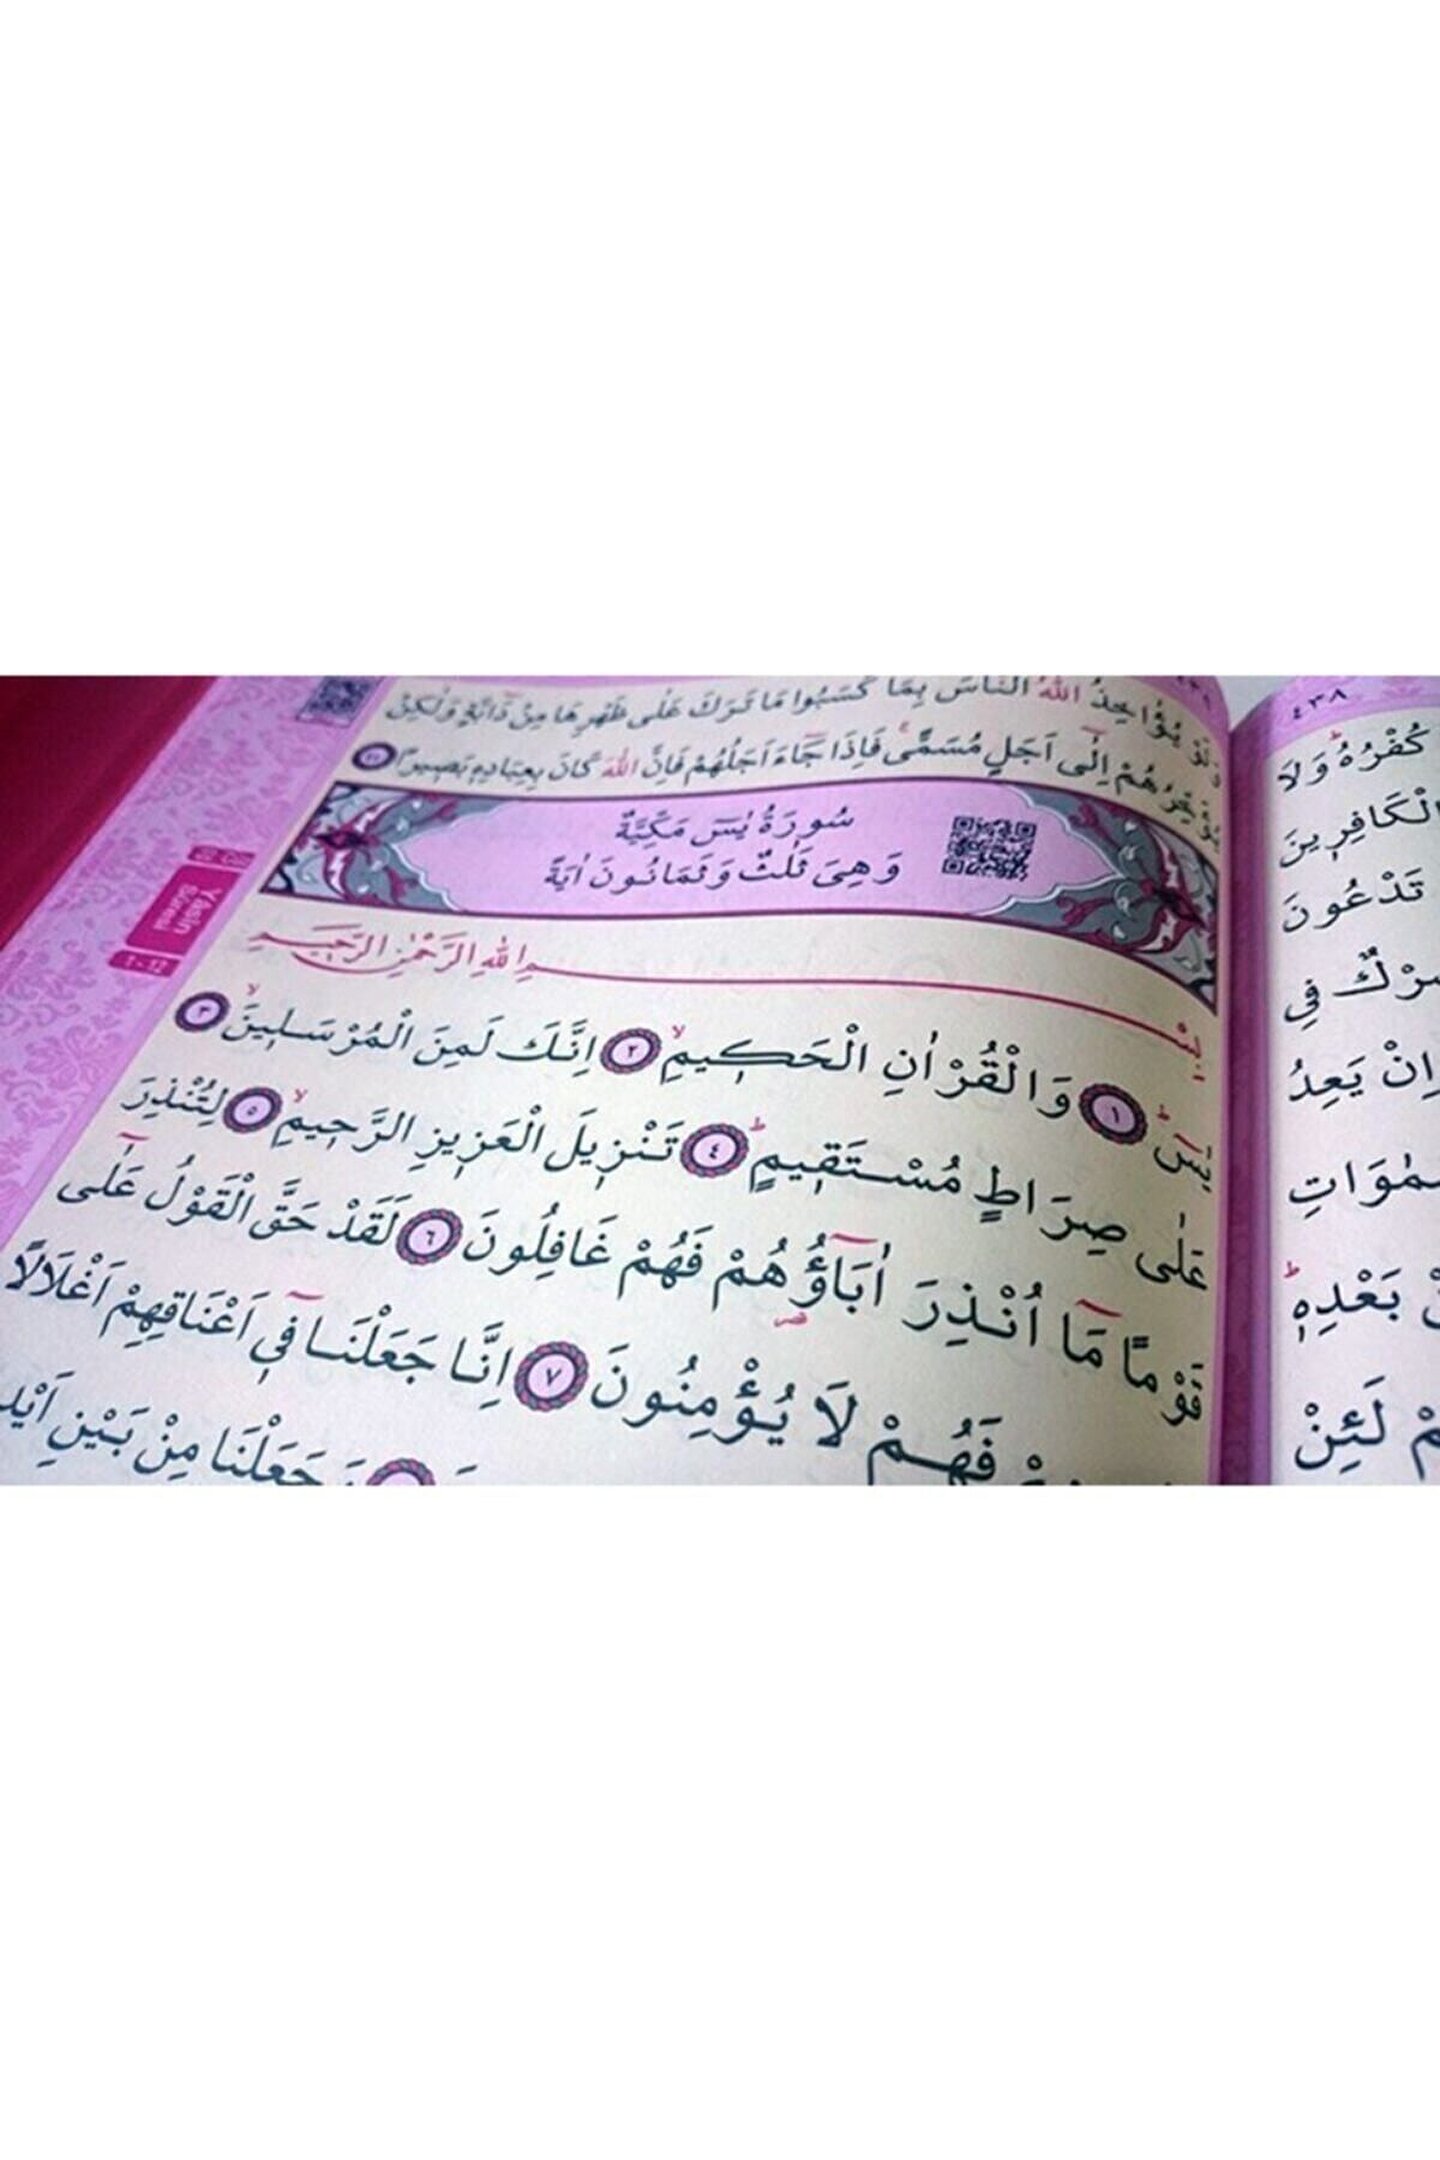 يُؤَاخِذُ اللّٰهُ النَّاسَ بِمَا كَسَبُوا مَا تَرَكَ عَلٰى ظَهْرِهَا مِنْ دَٓابَّةٍ وَلٰكِنْ
يُؤَخِّرُهُمْ اِلٰٓى اَجَلٍ مُسَمًّىۚ فَاِذَا جَٓاءَ اَجَلُهُمْ فَاِنَّ اللّٰهَ كَانَ بِعِبَادِه۪ بَص۪يرًا
سُورَةُ يٰسٓ مَكِّيَّةٌ
وَهِىَ ثَلٰثٌ وَثَمَانُونَ اٰيَةً
بِسْمِ اللّٰهِ الرَّحْمٰنِ الرَّح۪يمِ
يٰسٓۜ ﴿١﴾ وَالْقُرْاٰنِ الْحَك۪يمِۙ ﴿٢﴾ اِنَّكَ لَمِنَ الْمُرْسَل۪ينَۙ ﴿٣﴾
عَلٰى صِرَاطٍ مُسْتَق۪يمٍۜ ﴿٤﴾ تَنْز۪يلَ الْعَز۪يزِ الرَّح۪يمِۙ ﴿٥﴾ لِتُنْذِرَ
قَوْمًا مَٓا اُنْذِرَ اٰبَٓاؤُ۬هُمْ فَهُمْ غَافِلُونَ ﴿٦﴾ لَقَدْ حَقَّ الْقَوْلُ عَلٰٓى
فَهُمْ لَا يُؤْمِنُونَ ﴿٧﴾ اِنَّا جَعَلْنَا ف۪ٓي اَعْنَاقِهِمْ اَغْلَالًا
وَجَعَلْنَا مِنْ بَيْنِ
Yâsîn
Sûresi
٤٣٨
كُفْرُهُۜ وَلَا
الْكَافِر۪ينَ
تَدْعُونَ
فِي
اِنْ يَعِدُ
بَعْدِه۪ۜ
لَئِنْ